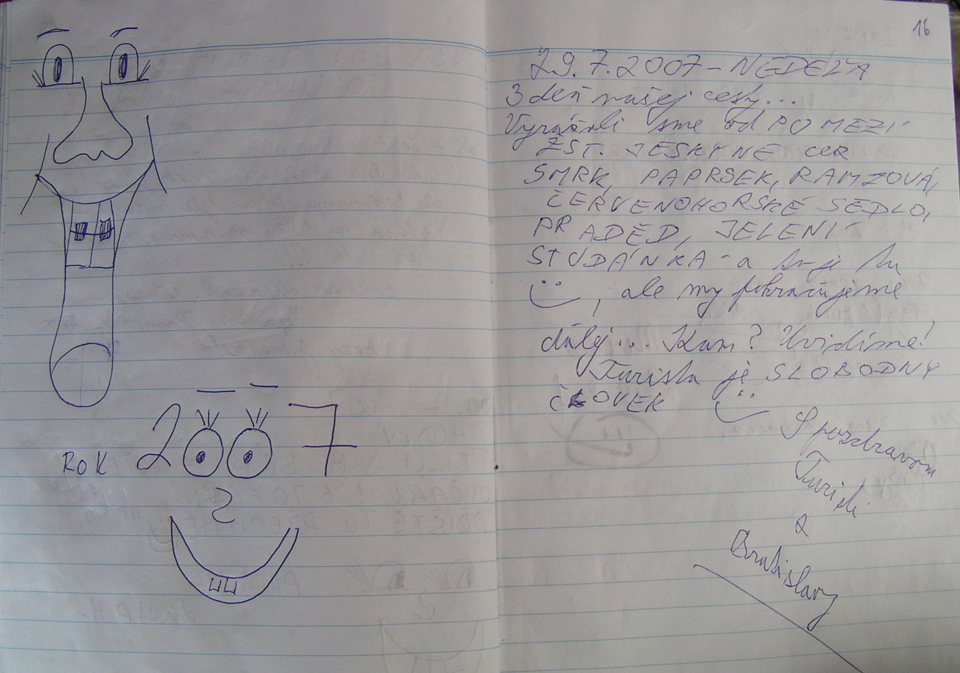 ROK 2007
16
29.7.2007 - NEDEĽA
3 deň našej cesty...
Vyrážali sme od POMEZÍ
ŽST. JESKYNĚ CEZ
SMRK, PAPRSEK, RAMZOVÁ,
ČERVENOHORSKÉ SEDLO,
PRADĚD, JELENÍ
STUDÁNKA - a tu je tu
, ale my pokračujeme
ďalej... Kam? Uvidíme!
Turista je SLOBODNÝ
ČLOVEK
S pozdravom
Turisti
z
Bratislavy